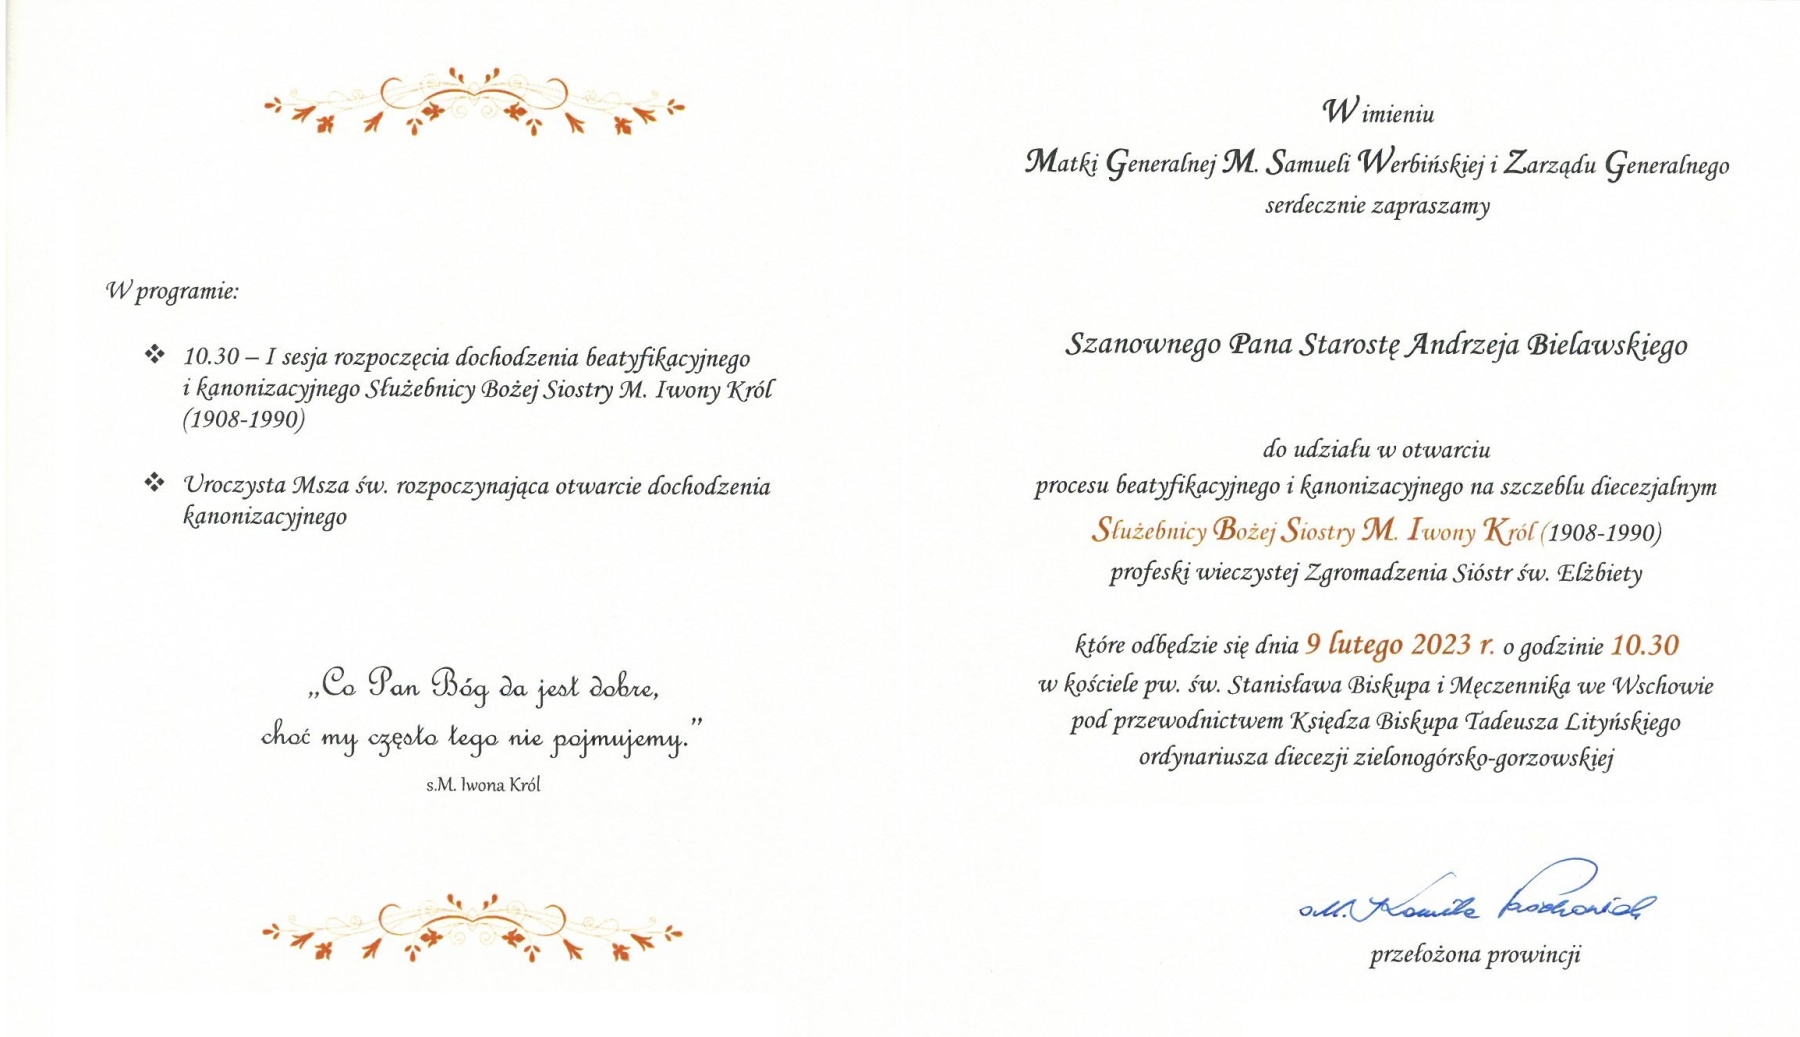 W programie:
❖ 10.30 – I sesja rozpoczęcia dochodzenia beatyfikacyjnego
i kanonizacyjnego Służebnicy Bożej Siostry M. Iwony Król
(1908-1990)
❖ Uroczysta Msza św. rozpoczynająca otwarcie dochodzenia
kanonizacyjnego
„Co Pan Bóg da jest dobre,
choć my często tego nie pojmujemy.”
s.M. Iwona Król
W imieniu
Matki Generalnej M. Samueli Werbińskiej i Zarządu Generalnego
serdecznie zapraszamy
Szanownego Pana Starostę Andrzeja Bielawskiego
do udziału w otwarciu
procesu beatyfikacyjnego i kanonizacyjnego na szczeblu diecezjalnym
Służebnicy Bożej Siostry M. Iwony Król (1908-1990)
profeski wieczystej Zgromadzenia Sióstr św. Elżbiety
które odbędzie się dnia 9 lutego 2023 r. o godzinie 10.30
w kościele pw. św. Stanisława Biskupa i Męczennika we Wschowie
pod przewodnictwem Księdza Biskupa Tadeusza Lityńskiego
ordynariusza diecezji zielonogórsko-gorzowskiej
s.M. Kamila
przełożona prowincji